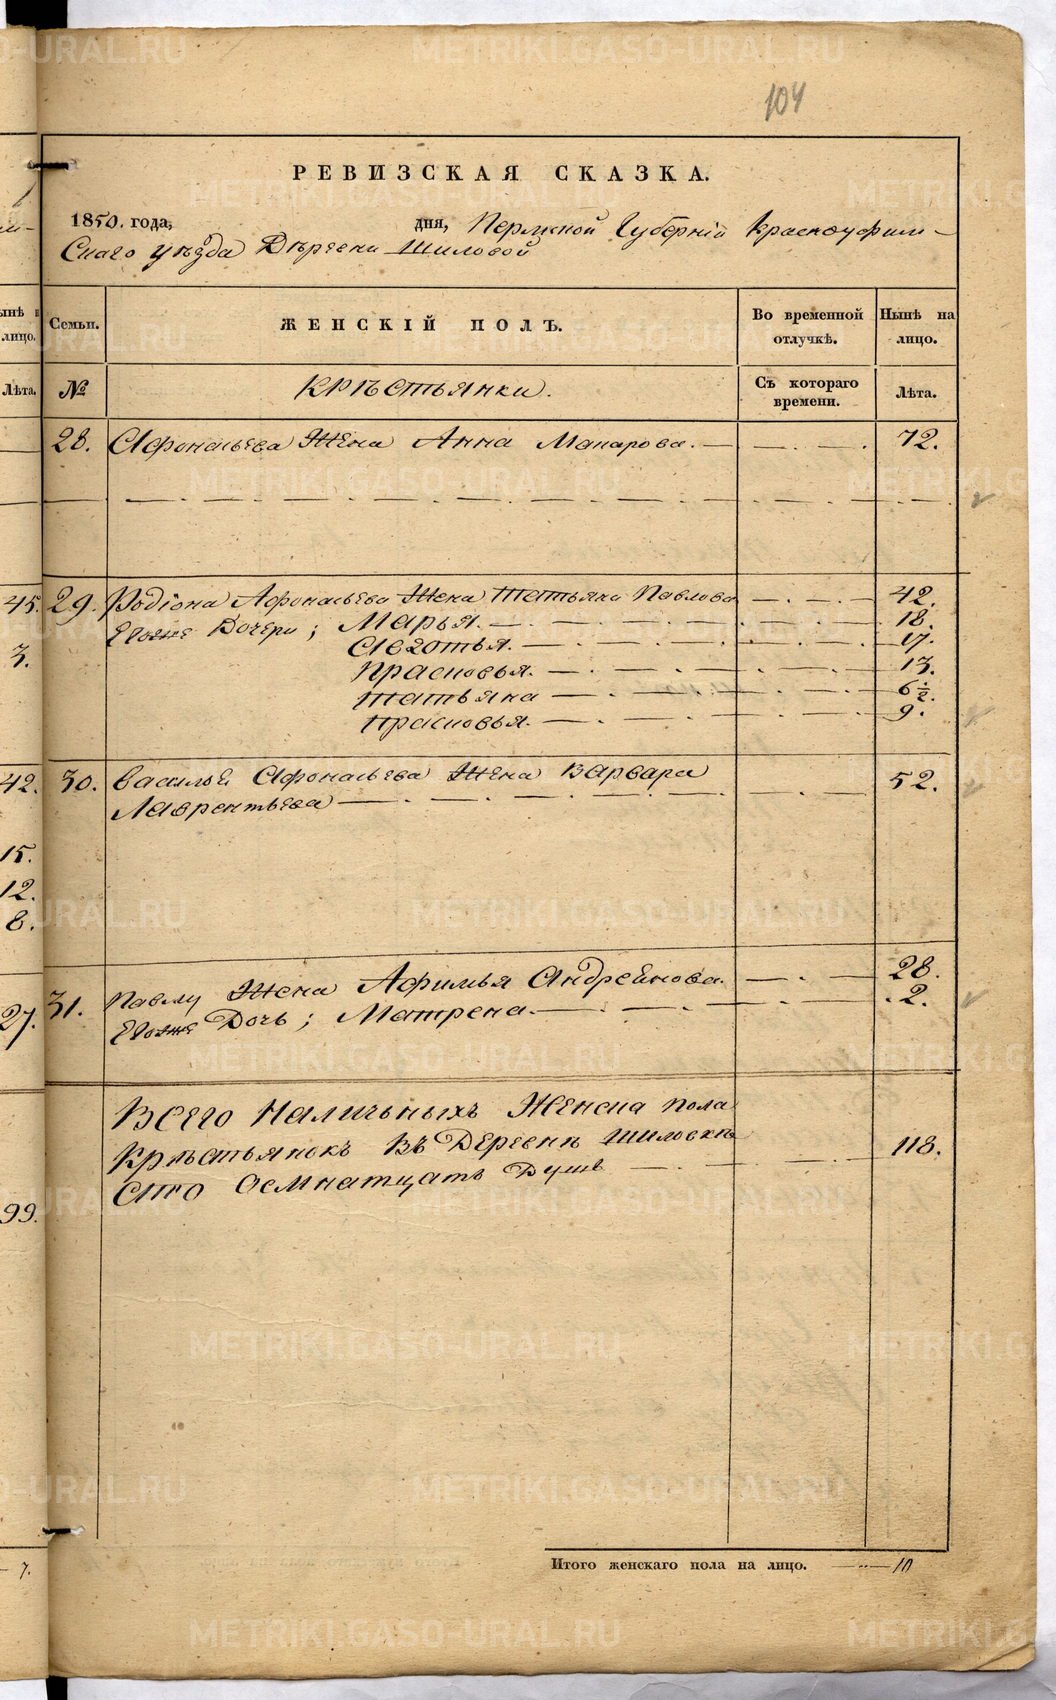 104
РЕВИЗСКАЯ СКАЗКА.
1850. года, дня, Пермской Губерніи Красноуфим-
Скаго уѣзда Дѣревни Шиловой
Семьи. ЖЕНСКІЙ ПОЛЪ. Во временной отлучкѣ. Нынѣ на лицо.
№ Крѣстьянки. Съ котораго времени. Лѣта.
28. Афонасьева Жена Анна Макарова. 72.
29. Родіона Афонасьева Жена Татьяна Павлова 42.
Евоже Дочери; Марья. 18.
Федотья. 17.
Прасковья. 13.
Татьяна 6½.
Прасковья. 9.
30. Василья Афонасьева Жена Варвара 52.
Лаврентьева
31. Павлу Жена Афимья Андреянова. 28.
Евоже Дочь; Матрена. 2.
Всего Наличьныхъ Женска пола
Крѣстьянокъ Въ Деревнѣ Шиловкѣ 118.
Сто Осмнатцать Душь
Итого женскаго пола на лицо. 10
ынѣ н
лицо.
Лѣта.
45.
3.
42.
15.
12.
8.
27.
99.
7.
METRIKI.GASO-URAL.RU